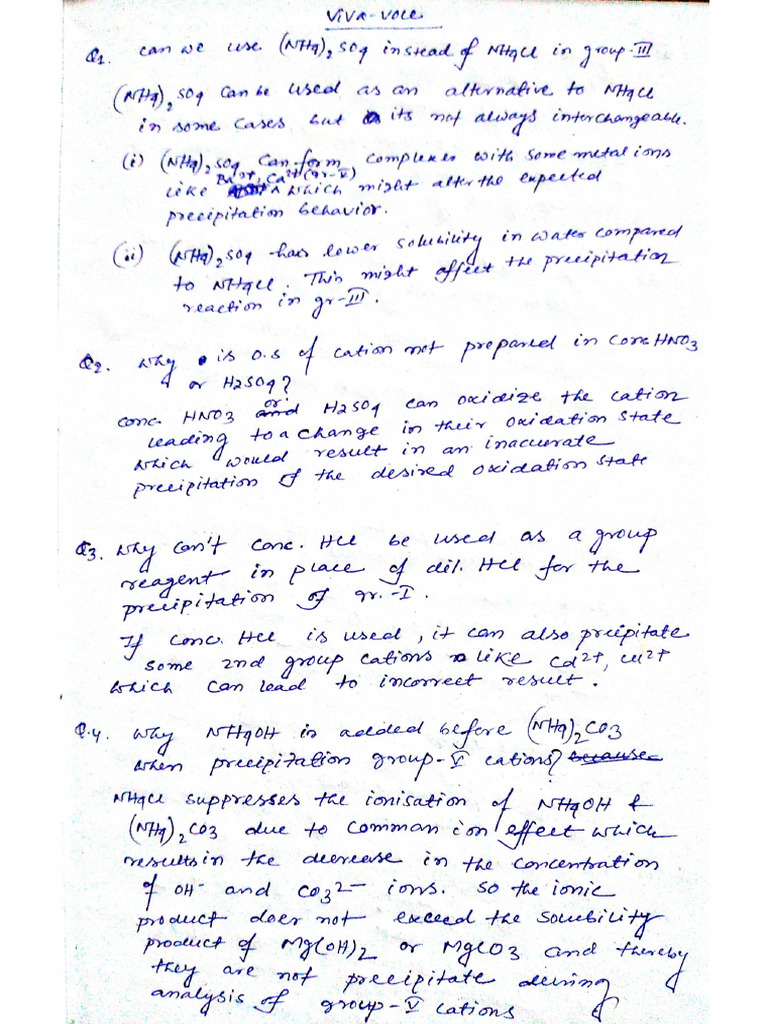 Viva-voce
Q1. Can we use (NH4)2SO4 instead of NH4Cl in group-III
(NH4)2SO4 can be used as an alternative to NH4Cl
in some cases but its not always interchangeable.
(i) (NH4)2SO4 can form complexes with some metal ions
like Ba2+, Ca2+ (gr-V) which might alter the expected
precipitation behavior.
(ii) (NH4)2SO4 has lower solubility in water compared
to NH4Cl. This might affect the precipitation
reaction in gr-III.
Q2. Why is O.S of cation not prepared in conc HNO3
or H2SO4?
conc. HNO3 or H2SO4 can oxidize the cation
leading to a change in their oxidation state
which would result in an inaccurate
precipitation of the desired oxidation state
Q3. Why can't conc. HCl be used as a group
reagent in place of dil. HCl for the
precipitation of gr.-I.
If conc. HCl is used, it can also prcipitate
some 2nd group cations like Cd2+, Cu2+
which can lead to incorrect result.
Q.4. Why NH4OH is added before (NH4)2CO3
when precipitation group-V cations? because
NH4Cl suppresses the ionisation of NH4OH &
(NH4)2CO3 due to common ion effect which
results in the decrease in the concentration
of OH- and CO3 2- ions. so the ionic
product does not exceed the solubility
product of Mg(OH)2 or MgCO3 and thereby
they are not precipitate during
analysis of group-V cations